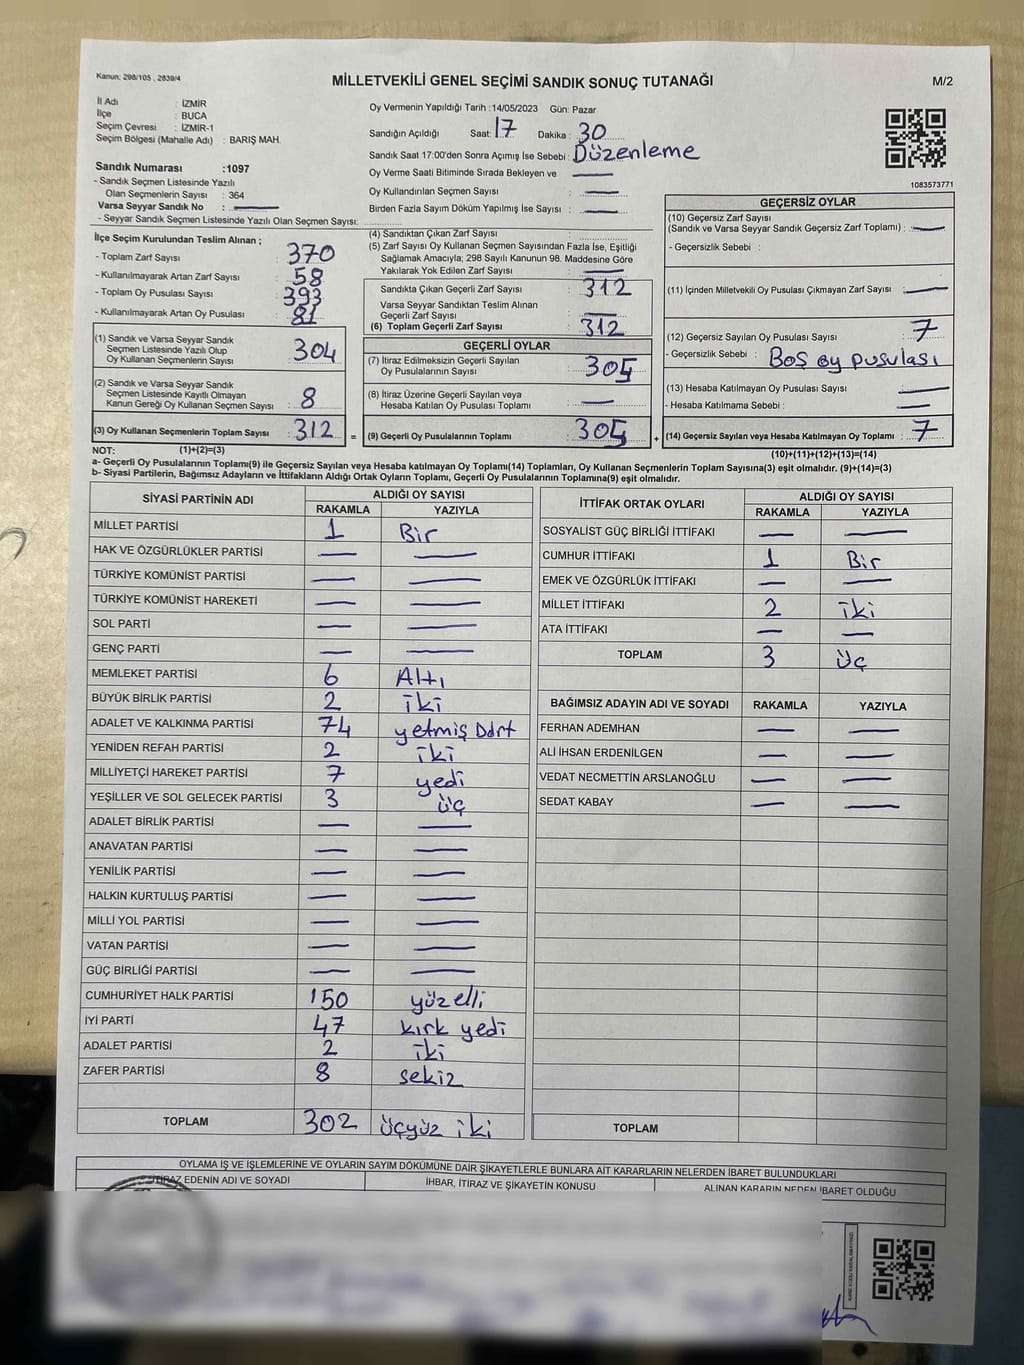 Kanun: 298/105 , 2839/4
MİLLETVEKİLİ GENEL SEÇİMİ SANDIK SONUÇ TUTANAĞI
M/2
İl Adı : İZMİR
İlçe : BUCA
Seçim Çevresi : İZMİR-1
Seçim Bölgesi (Mahalle Adı) : BARIŞ MAH.
Sandık Numarası :1097
- Sandık Seçmen Listesinde Yazılı
Olan Seçmenlerin Sayısı : 364
Varsa Seyyar Sandık No : —
- Seyyar Sandık Seçmen Listesinde Yazılı Olan Seçmen Sayısı:
Oy Vermenin Yapıldığı Tarih :14/05/2023 Gün: Pazar
Sandığın Açıldığı Saat: 17 Dakika : 30
Sandık Saat 17:00'den Sonra Açımış İse Sebebi : Düzenleme
Oy Verme Saati Bitiminde Sırada Bekleyen ve —
Oy Kullandırılan Seçmen Sayısı : —
Birden Fazla Sayım Döküm Yapılmış İse Sayısı : —
1083573771
İlçe Seçim Kurulundan Teslim Alınan ;
- Toplam Zarf Sayısı : 370
- Kullanılmayarak Artan Zarf Sayısı : 58
- Toplam Oy Pusulası Sayısı : 393
- Kullanılmayarak Artan Oy Pusulası : 81
(1) Sandık ve Varsa Seyyar Sandık
Seçmen Listesinde Yazılı Olup
Oy Kullanan Seçmenlerin Sayısı : 304
(2) Sandık ve Varsa Seyyar Sandık
Seçmen Listesinde Kayıtlı Olmayan
Kanun Gereği Oy Kullanan Seçmen Sayısı : 8
(3) Oy Kullanan Seçmenlerin Toplam Sayısı : 312 =
(4) Sandıktan Çıkan Zarf Sayısı :
(5) Zarf Sayısı Oy Kullanan Seçmen Sayısından Fazla İse, Eşitliği
Sağlamak Amacıyla; 298 Sayılı Kanunun 98. Maddesine Göre
Yakılarak Yok Edilen Zarf Sayısı : —
Sandıkta Çıkan Geçerli Zarf Sayısı : 312
Varsa Seyyar Sandıktan Teslim Alınan
Geçerli Zarf Sayısı : —
(6) Toplam Geçerli Zarf Sayısı : 312
GEÇERLİ OYLAR
(7) İtiraz Edilmeksizin Geçerli Sayılan
Oy Pusulalarının Sayısı : 305
(8) İtiraz Üzerine Geçerli Sayılan veya
Hesaba Katılan Oy Pusulası Toplamı : —
(9) Geçerli Oy Pusulalarının Toplamı : 305 +
GEÇERSİZ OYLAR
(10) Geçersiz Zarf Sayısı
(Sandık ve Varsa Seyyar Sandık Geçersiz Zarf Toplamı) : —
- Geçersizlik Sebebi :
(11) İçinden Milletvekili Oy Pusulası Çıkmayan Zarf Sayısı : —
(12) Geçersiz Sayılan Oy Pusulası Sayısı : 7
- Geçersizlik Sebebi : Boş oy pusulası
(13) Hesaba Katılmayan Oy Pusulası Sayısı : —
- Hesaba Katılmama Sebebi : —
(14) Geçersiz Sayılan veya Hesaba Katılmayan Oy Toplamı : 7
NOT: (1)+(2)=(3) (10)+(11)+(12)+(13)=(14)
a- Geçerli Oy Pusulalarının Toplamı(9) ile Geçersiz Sayılan veya Hesaba katılmayan Oy Toplamı(14) Toplamları, Oy Kullanan Seçmenlerin Toplam Sayısına(3) eşit olmalıdır. (9)+(14)=(3)
b- Siyasi Partilerin, Bağımsız Adayların ve İttifakların Aldığı Ortak Oyların Toplamı, Geçerli Oy Pusulalarının Toplamına(9) eşit olmalıdır.
SİYASİ PARTİNİN ADI ALDIĞI OY SAYISI
RAKAMLA YAZIYLA
MİLLET PARTİSİ 1 Bir
HAK VE ÖZGÜRLÜKLER PARTİSİ — —
TÜRKİYE KOMÜNİST PARTİSİ — —
TÜRKİYE KOMÜNİST HAREKETİ — —
SOL PARTİ — —
GENÇ PARTİ — —
MEMLEKET PARTİSİ 6 Altı
BÜYÜK BİRLİK PARTİSİ 2 iki
ADALET VE KALKINMA PARTİSİ 74 yetmiş Dört
YENİDEN REFAH PARTİSİ 2 iki
MİLLİYETÇİ HAREKET PARTİSİ 7 yedi
YEŞİLLER VE SOL GELECEK PARTİSİ 3 üç
ADALET BİRLİK PARTİSİ — —
ANAVATAN PARTİSİ — —
YENİLİK PARTİSİ — —
HALKIN KURTULUŞ PARTİSİ — —
MİLLİ YOL PARTİSİ — —
VATAN PARTİSİ — —
GÜÇ BİRLİĞİ PARTİSİ — —
CUMHURİYET HALK PARTİSİ 150 yüzelli
İYİ PARTİ 47 kırk yedi
ADALET PARTİSİ 2 iki
ZAFER PARTİSİ 8 sekiz
TOPLAM 302 üçyüz iki
İTTİFAK ORTAK OYLARI ALDIĞI OY SAYISI
RAKAMLA YAZIYLA
SOSYALİST GÜÇ BİRLİĞİ İTTİFAKI — —
CUMHUR İTTİFAKI 1 Bir
EMEK VE ÖZGÜRLÜK İTTİFAKI — —
MİLLET İTTİFAKI 2 iki
ATA İTTİFAKI — —
TOPLAM 3 üç
BAĞIMSIZ ADAYIN ADI VE SOYADI RAKAMLA YAZIYLA
FERHAN ADEMHAN — —
ALİ İHSAN ERDENİLGEN — —
VEDAT NECMETTİN ARSLANOĞLU — —
SEDAT KABAY — —
TOPLAM
OYLAMA İŞ VE İŞLEMLERİNE VE OYLARIN SAYIM DÖKÜMÜNE DAİR ŞİKAYETLERLE BUNLARA AİT KARARLARIN NELERDEN İBARET BULUNDUKLARI
İTİRAZ EDENİN ADI VE SOYADI İHBAR, İTİRAZ VE ŞİKAYETİN KONUSU ALINAN KARARIN NEDEN İBARET OLDUĞU